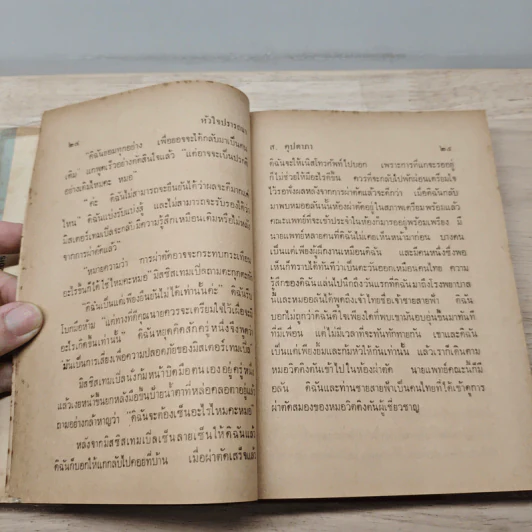 ๒๘
หัวใจปรารถนา
"ดิฉันยอมทุกอย่าง เพื่อออจะได้กลับมาเป็นคน
เดิม" แกพูดเร็วอย่างตัดสินใจแล้ว "แต่อาจจะเป็นปรกติ
อย่างเดิมไหมคะ หมอ"
"ค่ะ ดิฉันไม่สามารถจะยืนยันได้ว่าผลจะดีมากแค่
ไหน" ดิฉันแบ่งรับแบ่งสู้ และไม่สามารถจะรับรองได้ว่า
มิสเตอร์เทมเปิ้ลจะกลับมีความรู้สึกเหมือนเดิมหรือไม่หลัง
จากการผ่าตัดแล้ว"
"หมายความว่า การผ่าตัดอาจจะกระทบกระเทือน
อะไรขึ้นก็ได้ใช่ไหมคะหมอ" มิสซิสเทมเปิ้ลถามตะกุกตะกัก
"ดิฉันเป็นแต่เพียงยืนยันไม่ได้เท่านั้นค่ะ" ดิฉันรีบ
โบกมือห้าม "แต่ทางที่ดีคุณนายควรจะเตรียมใจไว้เผื่อจะมี
อะไรเกิดขึ้นเท่านั้น" ดิฉันหยุดคิดสักครู่หนึ่งจึงพูดว่า
มันเป็นการเสี่ยงเพื่อความปลอดภัยของมิสเตอร์เทมเปิ้ล
มิสซิสเทมเปิ้ลนั่งก้มหน้าบีบมือตนเองอยู่ครู่หนึ่ง
แล้วเงยหน้าขึ้นยกหลังมือขึ้นป้ายน้ำตาที่ไหลคลอตาอยู่แล้ว
ถามอย่างกล้าหาญว่า "ดิฉันจะต้องเซ็นอะไรไหมคะหมอ"
หลังจากมิสซิสเทมเปิ้ลเซ็นลายเซ็นให้ดิฉันแล้ว
ดิฉันก็บอกให้แกกลับไปคอยที่บ้าน เมื่อผ่าตัดเสร็จแล้ว
ส. คุปตาภา
๒๙
ดิฉันจะให้เนิสโทรศัพท์ไปบอก เพราะการที่แกจะรออยู่
ก็ไม่ช่วยให้มีอะไรดีขึ้น ควรที่จะกลับไปพักผ่อนเตรียมใจ
ไว้รอฟังผลหลังจากการผ่าตัดแล้วจะดีกว่า เมื่อดิฉันกลับ
มาพบหมออลันนั้นห้องผ่าตัดอยู่ในสภาพเตรียมพร้อมแล้ว
คณะแพทย์ที่จะเข้าประจำในห้องก็มารออยู่พร้อมเพรียง มี
นายแพทย์หลายคนที่ดิฉันไม่เคยเห็นหน้ามาก่อน บางคน
เป็นแต่เพียงผู้ฝึกงานเหมือนดิฉัน และมีคนหนึ่งซึ่งพอ
เห็นก็ทราบได้ทันทีว่าเป็นตะวันออกเหมือนคนไทย ความ
รู้สึกของดิฉันแล่นไปนึกถึงวันแรกที่ดิฉันมาถึงโรงพยาบาล
นี้และหมออลันได้พูดถึงเจ้าไทยชื่อเจ้าชายสายฟ้า ดิฉัน
บอกไม่ถูกว่าดิฉันดีใจเพียงใดที่พบเขามันอบอุ่นขึ้นมาทันที
ที่มีเพื่อน แต่ไม่มีเวลาที่จะหันทักทายกัน เขาและดิฉัน
เป็นแต่เพียงยิ้มและก้มหัวให้กันเท่านั้น แล้วเราก็เดินตาม
หมอวิคคิงตันเข้าไปในห้องผ่าตัด นายแพทย์คณะนี้ก็มี
อลัน ดิฉันและท่านชายสายฟ้าเป็นคนไทยที่ได้เข้าดูการ
ผ่าตัดสมองของหมอวิคคิงตันผู้เชี่ยวชาญ